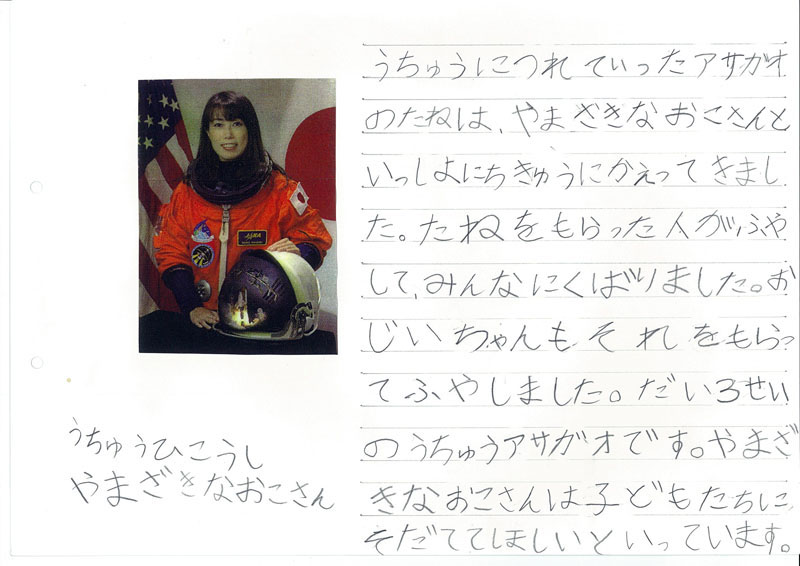 うちゅうにつれていったアサガオ
のたねは、やまざきなおこさんと
いっしよにちきゅうにかえってきまし
た。たねをもらった人が、ふや
して、みんなにくばりました。お
じいちゃんもそれをもらっ
てふやしました。だい3せい
のうちゅうアサガオです。やまざ
きなおこさんは子どもたちに、
そだててほしいといっています。
うちゅうひこうし
やまざきなおこさん